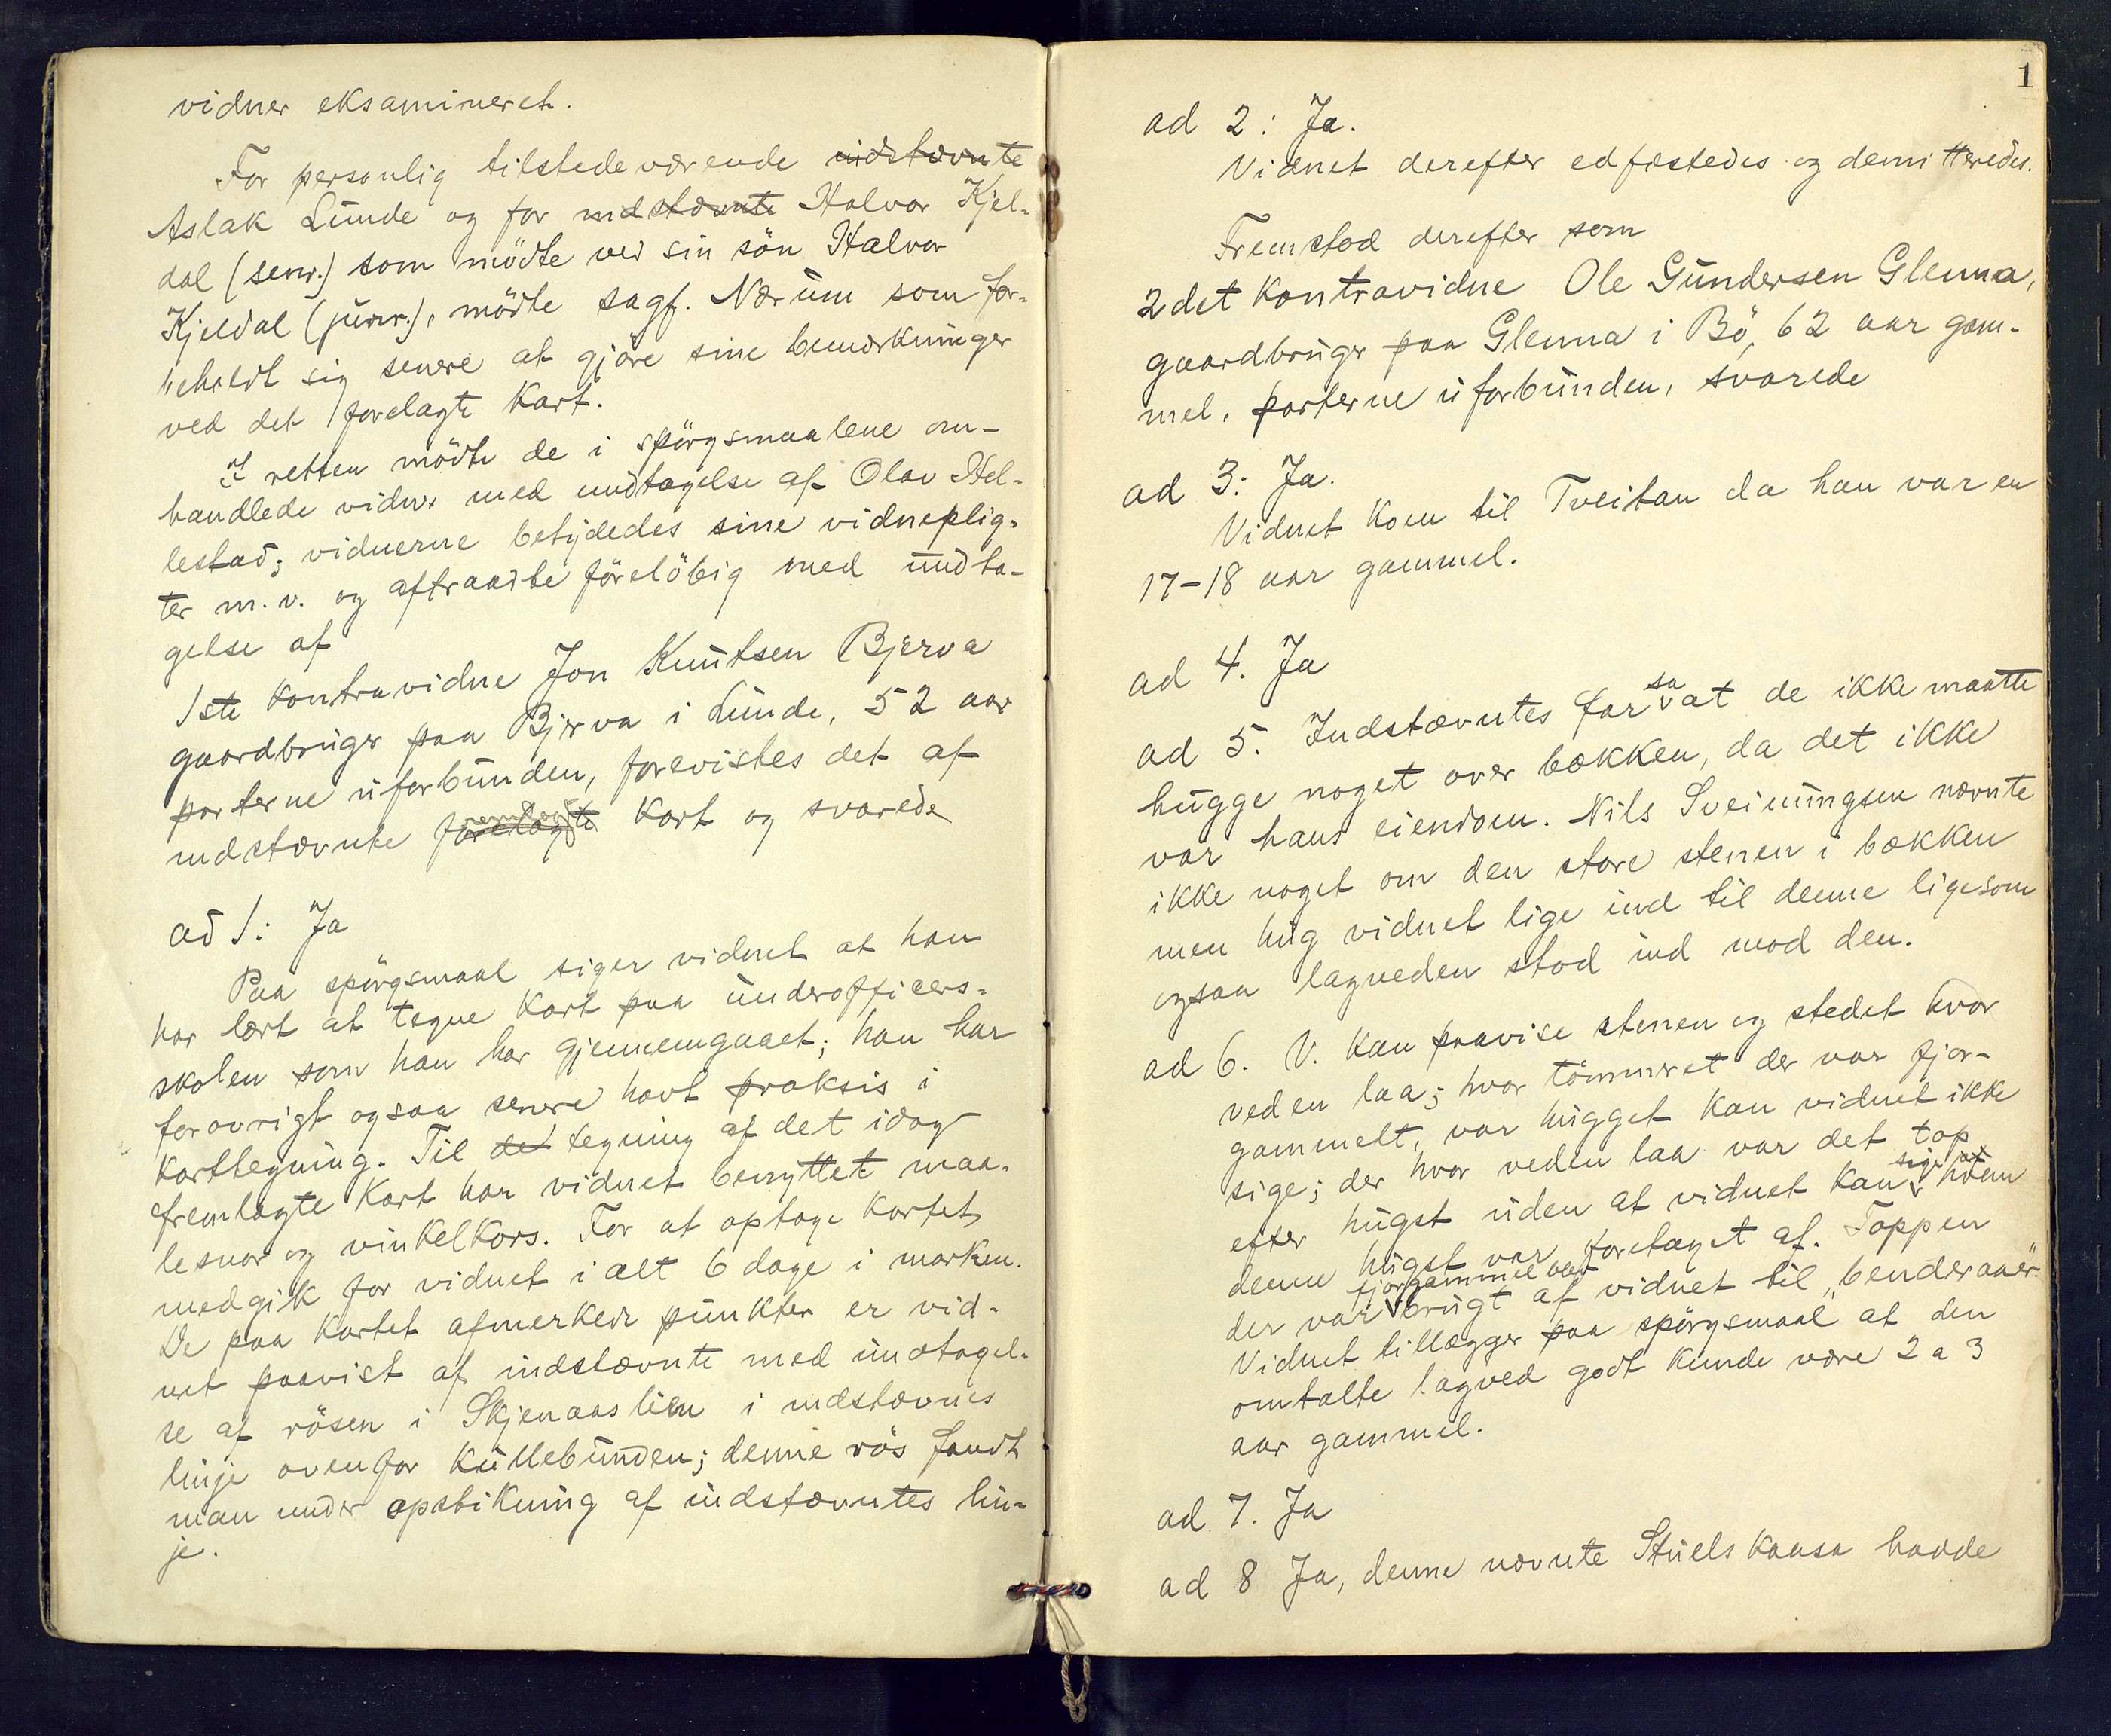 vidner eksamineret.
For personlig tilstedeværende indstævnte
Aslak Lunde og for indstævnte Halvor Kjel-
dal (senr.) som mödte ved sin sön Halvor
Kjeldal (junr.), mödte sagf. Nærum som for-
beholdt sig senere at gjöre sine bemærkninger
ved det forelagte Kart.
I retten mödte de i spörgsmaalene om-
handlede vidner med undtagelse af Olav Hel-
lestad; vidnerne betydedes sine vidneplig-
ter m.v. og aftraadte foreløbig med undta-
gelse af
1ste Kontravidne Jon Knutsen Bjerva
gaardbruger paa Bjerva i Lunde, 52 aar
parterne uforbunden, forevistes det af
indstævnte forelagte Kart og svarede
ad 1: Ja
Paa spörgsmaal siger vidnet at han
har lært at tegne Kart paa underofficers-
skolen som han har gjennemgaaet; han har
forøvrigt ogsaa senere havt praksis i
Karttegning. Til det tegning af det idag
fremlagte Kart har vidnet benyttet maa-
lesnor og vinkelkors. For at optage Kartet
medgik for vidnet i alt 6 dage i marken.
De paa Kartet afmerkede punkter er vid-
net paavist af indstævnte med undtagel-
se af rösen i Skjenaaslien i indstævntes
linje ovenfor Kullebunden; denne rös fandt
man under opstikning af indstævntes lin-
je.
1
ad 2: Ja.
Vidnet derefter edfæstedes og demitteredes.
Fremstod derefter som
2det Kontravidne Ole Gundersen Glenna,
gaardbruger paa Glenna i Bö, 62 aar gam-
mel, parterne uforbunden, svarede
ad 3: Ja.
Vidnet Kom til Tveitan da han var en
17-18 aar gammel.
ad 4. Ja
ad 5. Indstævntes far sa at de ikke maatte
hugge noget over bækken, da det ikke
var hans eiendom. Nils Sveinungsen nævnte
ikke noget om den store stenen i bækken
men hug vidnet lige ind til denne ligesom
ogsaa lagveden stod ind mod den.
ad 6. V. Kan paavise stenen og stedet hvor
veden laa; hvor tömmeret der var fjor-
gammelt, var hugget Kan vidnet ikke
sige; der hvor veden laa var det top
efter hugst uden at vidnet Kan sige af hvem
denne hugst var foretaget af. Toppen
der var fjorgammel blev brugt af vidnet til "benderaaer".
Vidnet tillægger paa spörgsmaal at den
omtalte lagved godt Kunde være 2 a 3
aar gammel.
ad 7. Ja
ad 8 Ja, denne nævnte Stuelskaasa havde